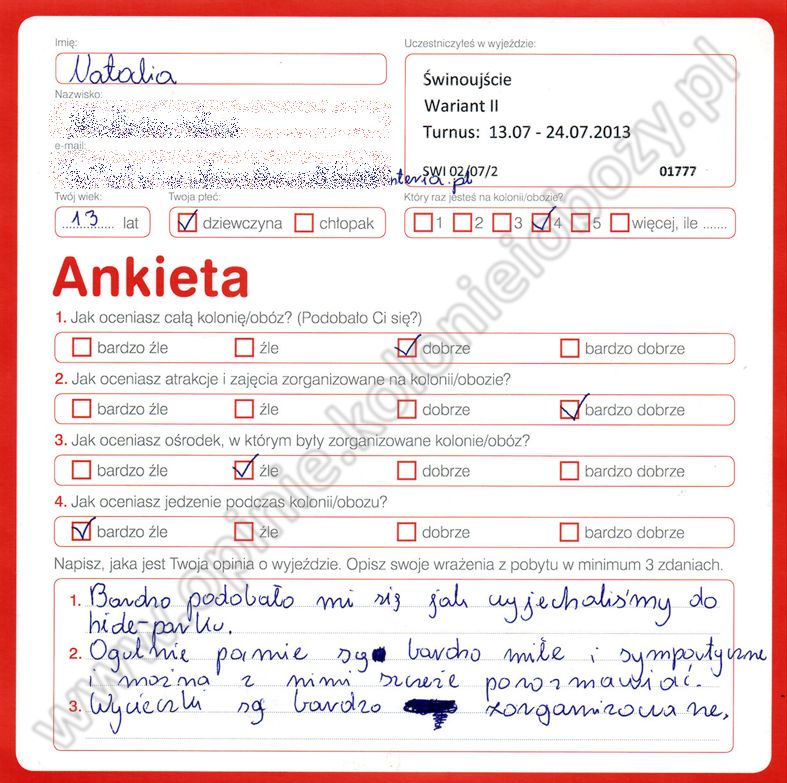 Imię:
Natalia
Uczestniczyłeś w wyjeździe:
Świnoujście
Wariant II
Turnus: 13.07 - 24.07.2013
SWI 02/07/2 01777
Nazwisko:
e-mail:
nteria.pl
Twój wiek:
13 lat
Twoja płeć:
dziewczyna chłopak
Który raz jesteś na kolonii/obozie?
1 2 3 4 5 więcej, ile .......
Ankieta
1. Jak oceniasz całą kolonię/obóz? (Podobało Ci się?)
bardzo źle źle dobrze bardzo dobrze
2. Jak oceniasz atrakcje i zajęcia zorganizowane na kolonii/obozie?
bardzo źle źle dobrze bardzo dobrze
3. Jak oceniasz ośrodek, w którym były zorganizowane kolonie/obóz?
bardzo źle źle dobrze bardzo dobrze
4. Jak oceniasz jedzenie podczas kolonii/obozu?
bardzo źle źle dobrze bardzo dobrze
Napisz, jaka jest Twoja opinia o wyjeździe. Opisz swoje wrażenia z pobytu w minimum 3 zdaniach.
1. Bardzo podobało mi się jak wyjechaliśmy do
hide parku.
2. Ogulnie panie są bardzo miłe i sympatyczne
i można z nimi szczeże porozmawiać.
3. Wycieczki są bardzo zorganizowane.
www.opinie.kolonieiobozy.pl